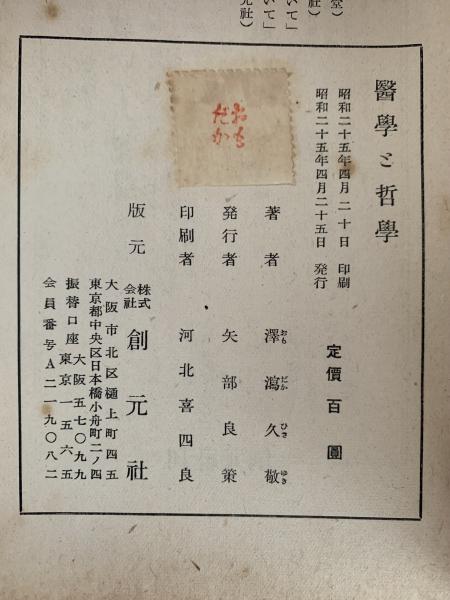 堂）
社）
いて」
いて」
元社）
醫學と哲學
昭和二十五年四月二十日 印刷
昭和二十五年四月二十五日 發行
定價百圓
著者 澤瀉久敬
おもだかひさゆき
発行者 矢部良策
印刷者 河北喜四良
版元 株式会社 創元社
大阪市北区樋上町四五
東京都中央区日本橋小舟町二ノ四
振替口座 大阪五七〇九九
東京一五六五
会員番号A二一九〇八二
おも
だか